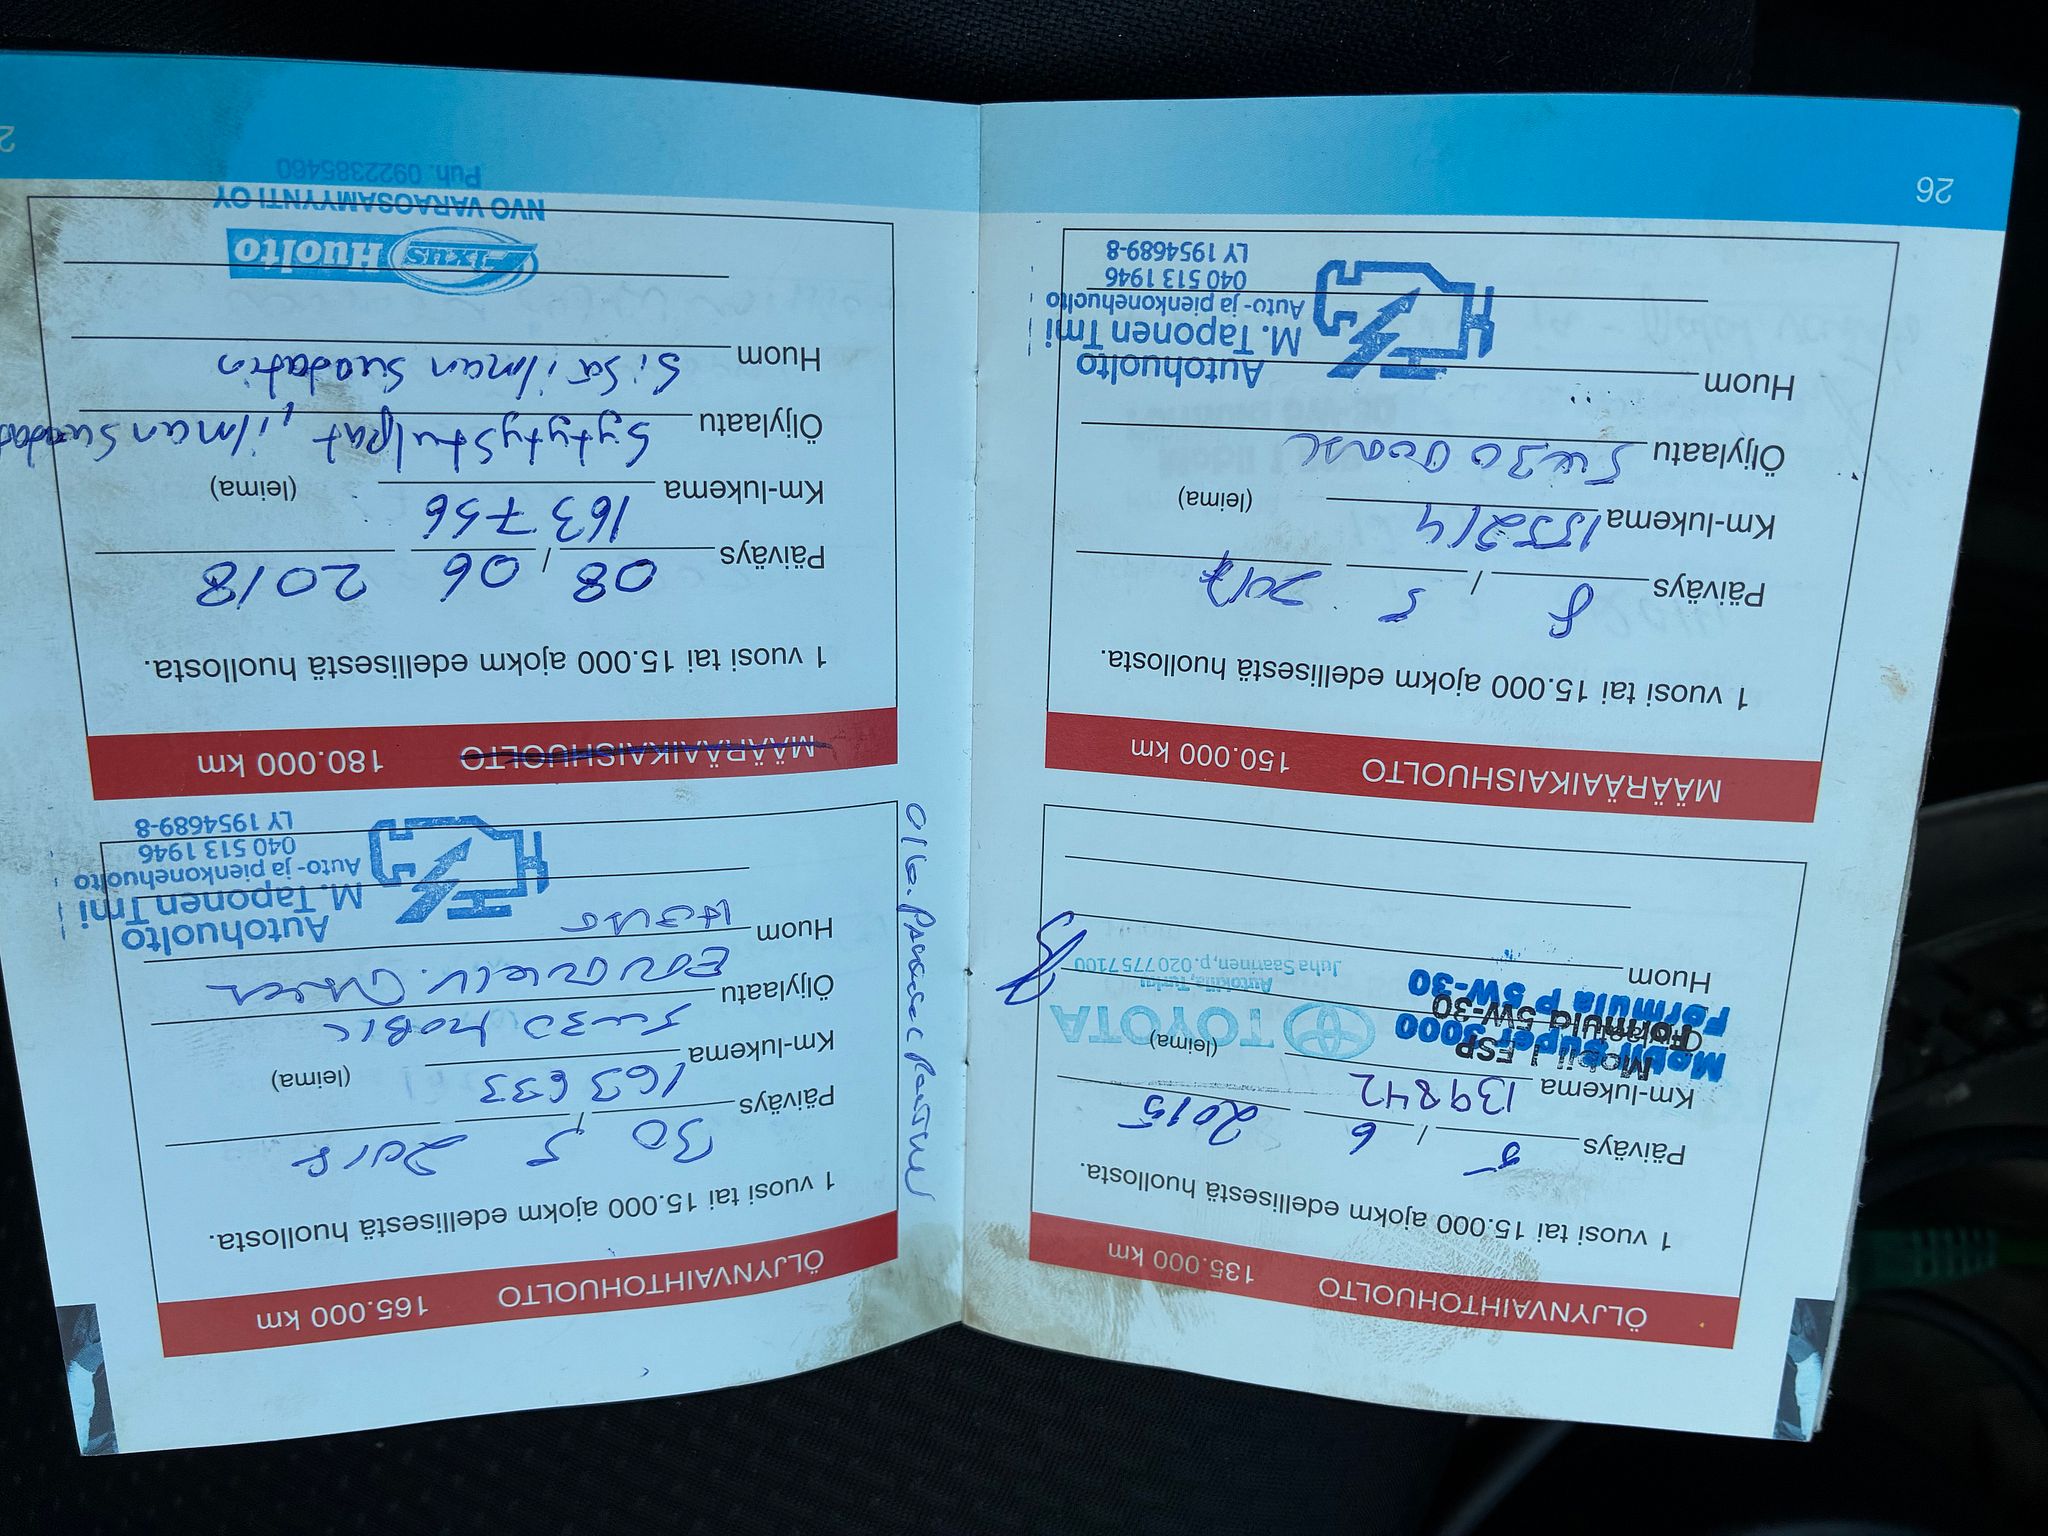 ÖLJYNVAIHTOHUOLTO 135.000 km
1 vuosi tai 15.000 ajokm edellisestä huollosta.
Päiväys 5 / 6 2015
Km-lukema 139842 (leima)
Mobil 1 ESP
Formula 5W-30
Super 3000
Formula P 5W-30
TOYOTA
Autokilta, Turku
Juha Saarinen, p. 020 775 7100
Huom
MÄÄRÄAIKAISHUOLTO 150.000 km
1 vuosi tai 15.000 ajokm edellisestä huollosta.
Päiväys 8 / 5 2017
Km-lukema 155214 (leima)
Öljylaatu 5w30
Huom
Autohuolto
M. Taponen Tmi
Auto- ja pienkonehuolto
040 513 1946
LY 1954689-8
26
ÖLJYNVAIHTOHUOLTO 165.000 km
1 vuosi tai 15.000 ajokm edellisestä huollosta.
Päiväys 30 / 5 2018
Km-lukema 163633 (leima)
5w30 MOBIL
Öljylaatu
Huom
Autohuolto
M. Taponen Tmi
Auto- ja pienkonehuolto
040 513 1946
LY 1954689-8
MÄÄRÄAIKAISHUOLTO 180.000 km
1 vuosi tai 15.000 ajokm edellisestä huollosta.
Päiväys 08 / 06 2018
Km-lukema 163756 (leima)
Öljylaatu Sytytystulpat, ilman suodat
Huom Sisä ilman suodatin
Fixus Huolto
NVO VARAOSAMYYNTI OY
Puh. 0922385460
2